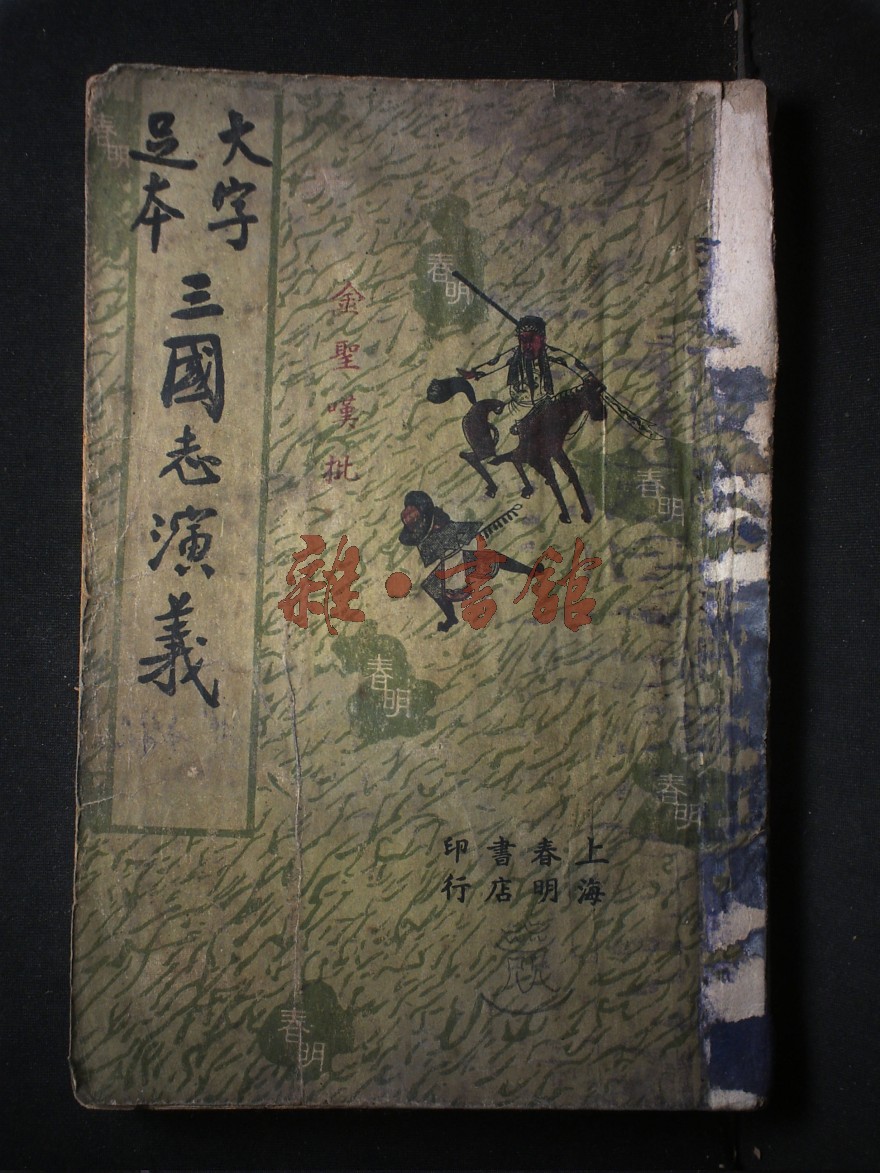 大字
足本
三國志演義
金聖嘆批
春明
春明
春明
春明
春明
春明
上海
春明
書店
印行
雜·書館